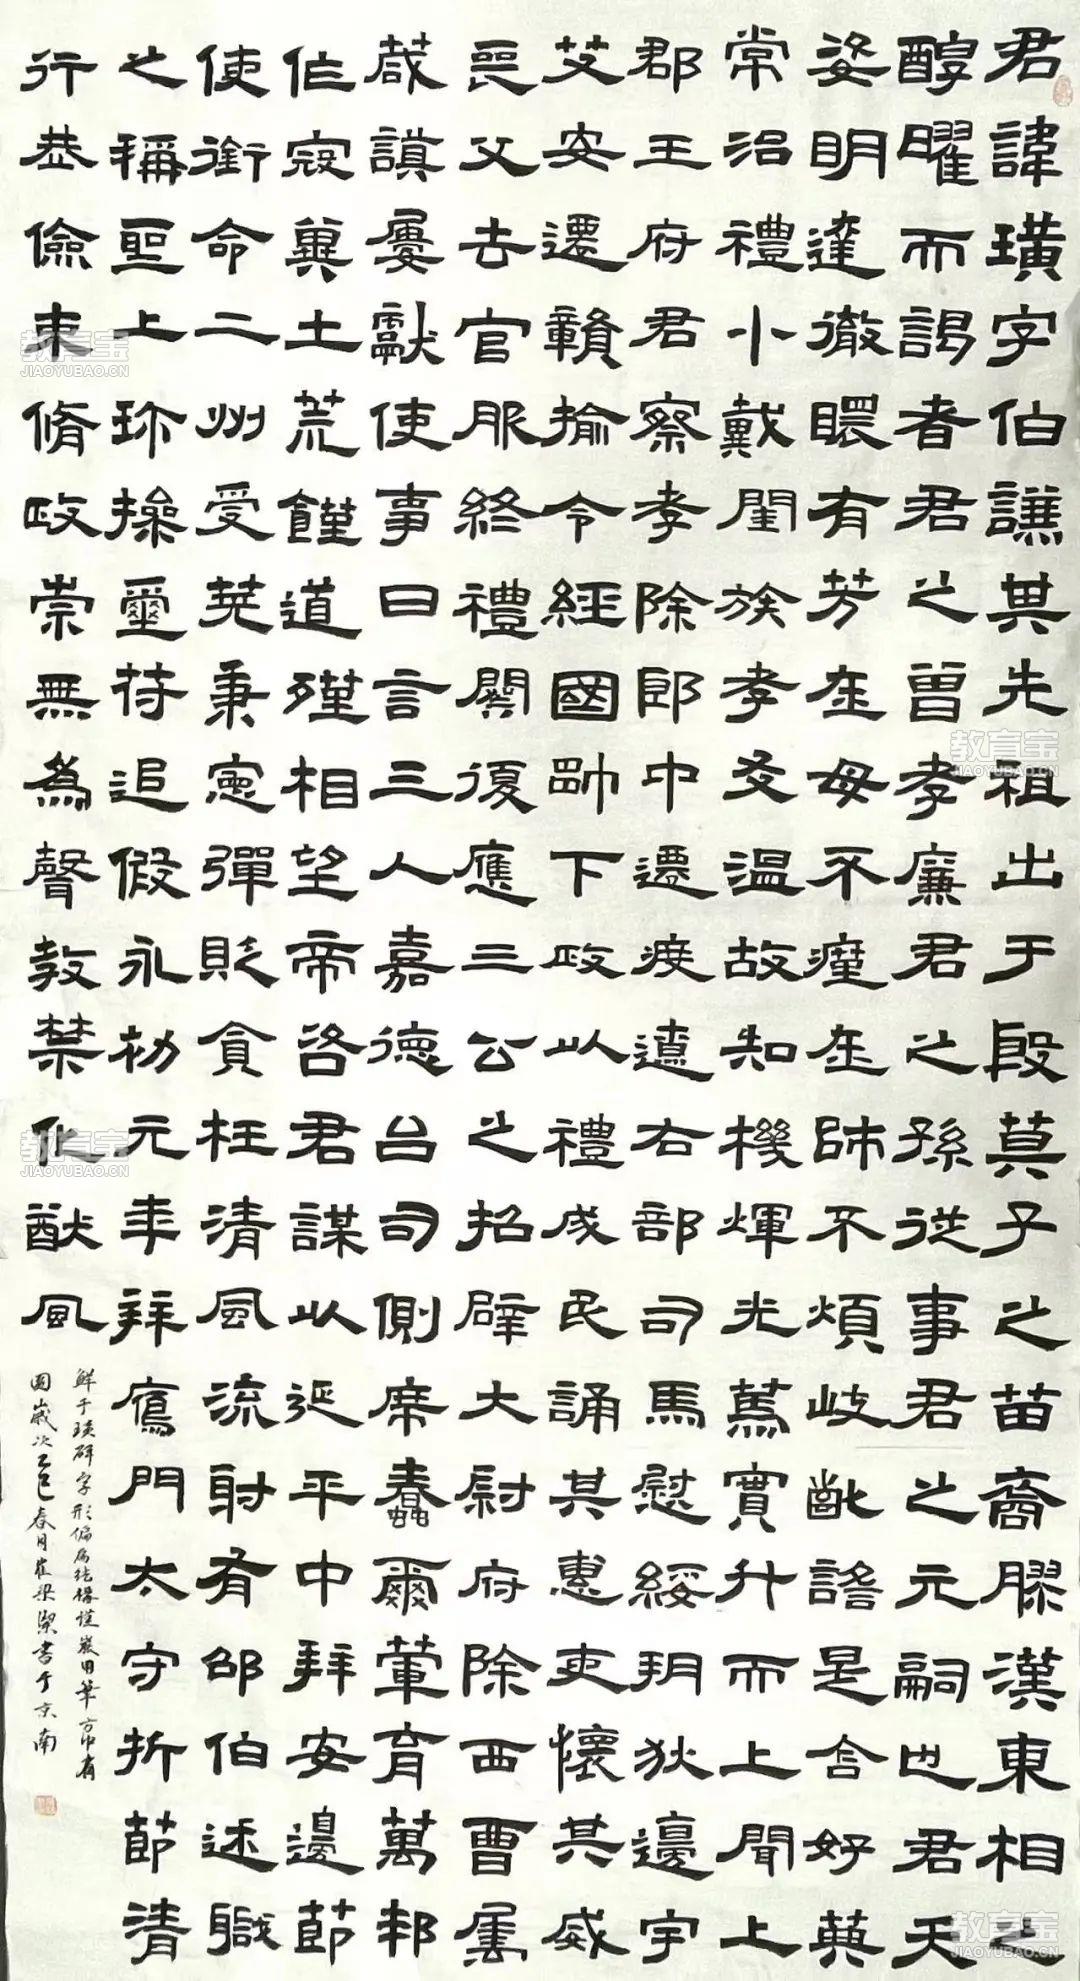 君諱璜字伯謙其先祖出于殷箕子之苗裔膠漢東相之
醇曜而謁者君之曾孝廉君之孫從事君之元嗣也君天
姿明達徹瞡有芳在母不瘽在師不煩岐嶷謠是含好英
常治禮小戴閨族孝友溫故知機煇光篤實升而上聞上
郡王府君察孝除郎中遷度遼右部司馬慰綏玥狄邊宇
艾安遷贛揄令經國帥下政以禮成民誦其惠吏懷其威
喪父去官服終禮闋復應三公之招辟大尉府除西曹屬
葴謨屢獻使事日言三人嘉德台司側席蠢爾葷育萬邦
作寇冀土荒饉道殣相望帝咨君謀以延平中拜安邊節
使銜命二州受莢秉憲彈貶貪枉清風流射有邵伯述職
之稱聖上珎操璽符追假永初元年拜鴈門太守折節清
行恭儉束脩政崇無為聲教禁化猷風
鮮于璜碑字形偏扁結構謹嚴用筆方中有
圓歲次乙巳春月崔梁𤅢書于京南
教育宝
JIAOYUBAO.CN
教育宝
JIAOYUBAO.CN
教育宝
JIAOYUBAO.CN
教育宝
JIAOYUBAO.CN